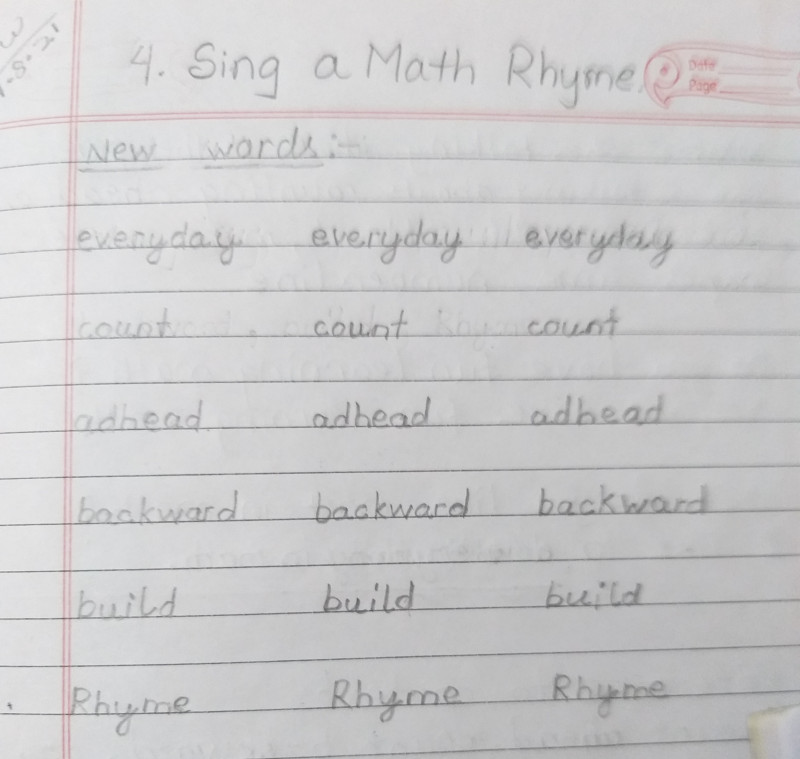 4. Sing a Math Rhyme.
Date
Page
New words:-
everyday everyday everyday
count count count
adhead adhead adhead
backward backward backward
build build build
Rhyme Rhyme Rhyme